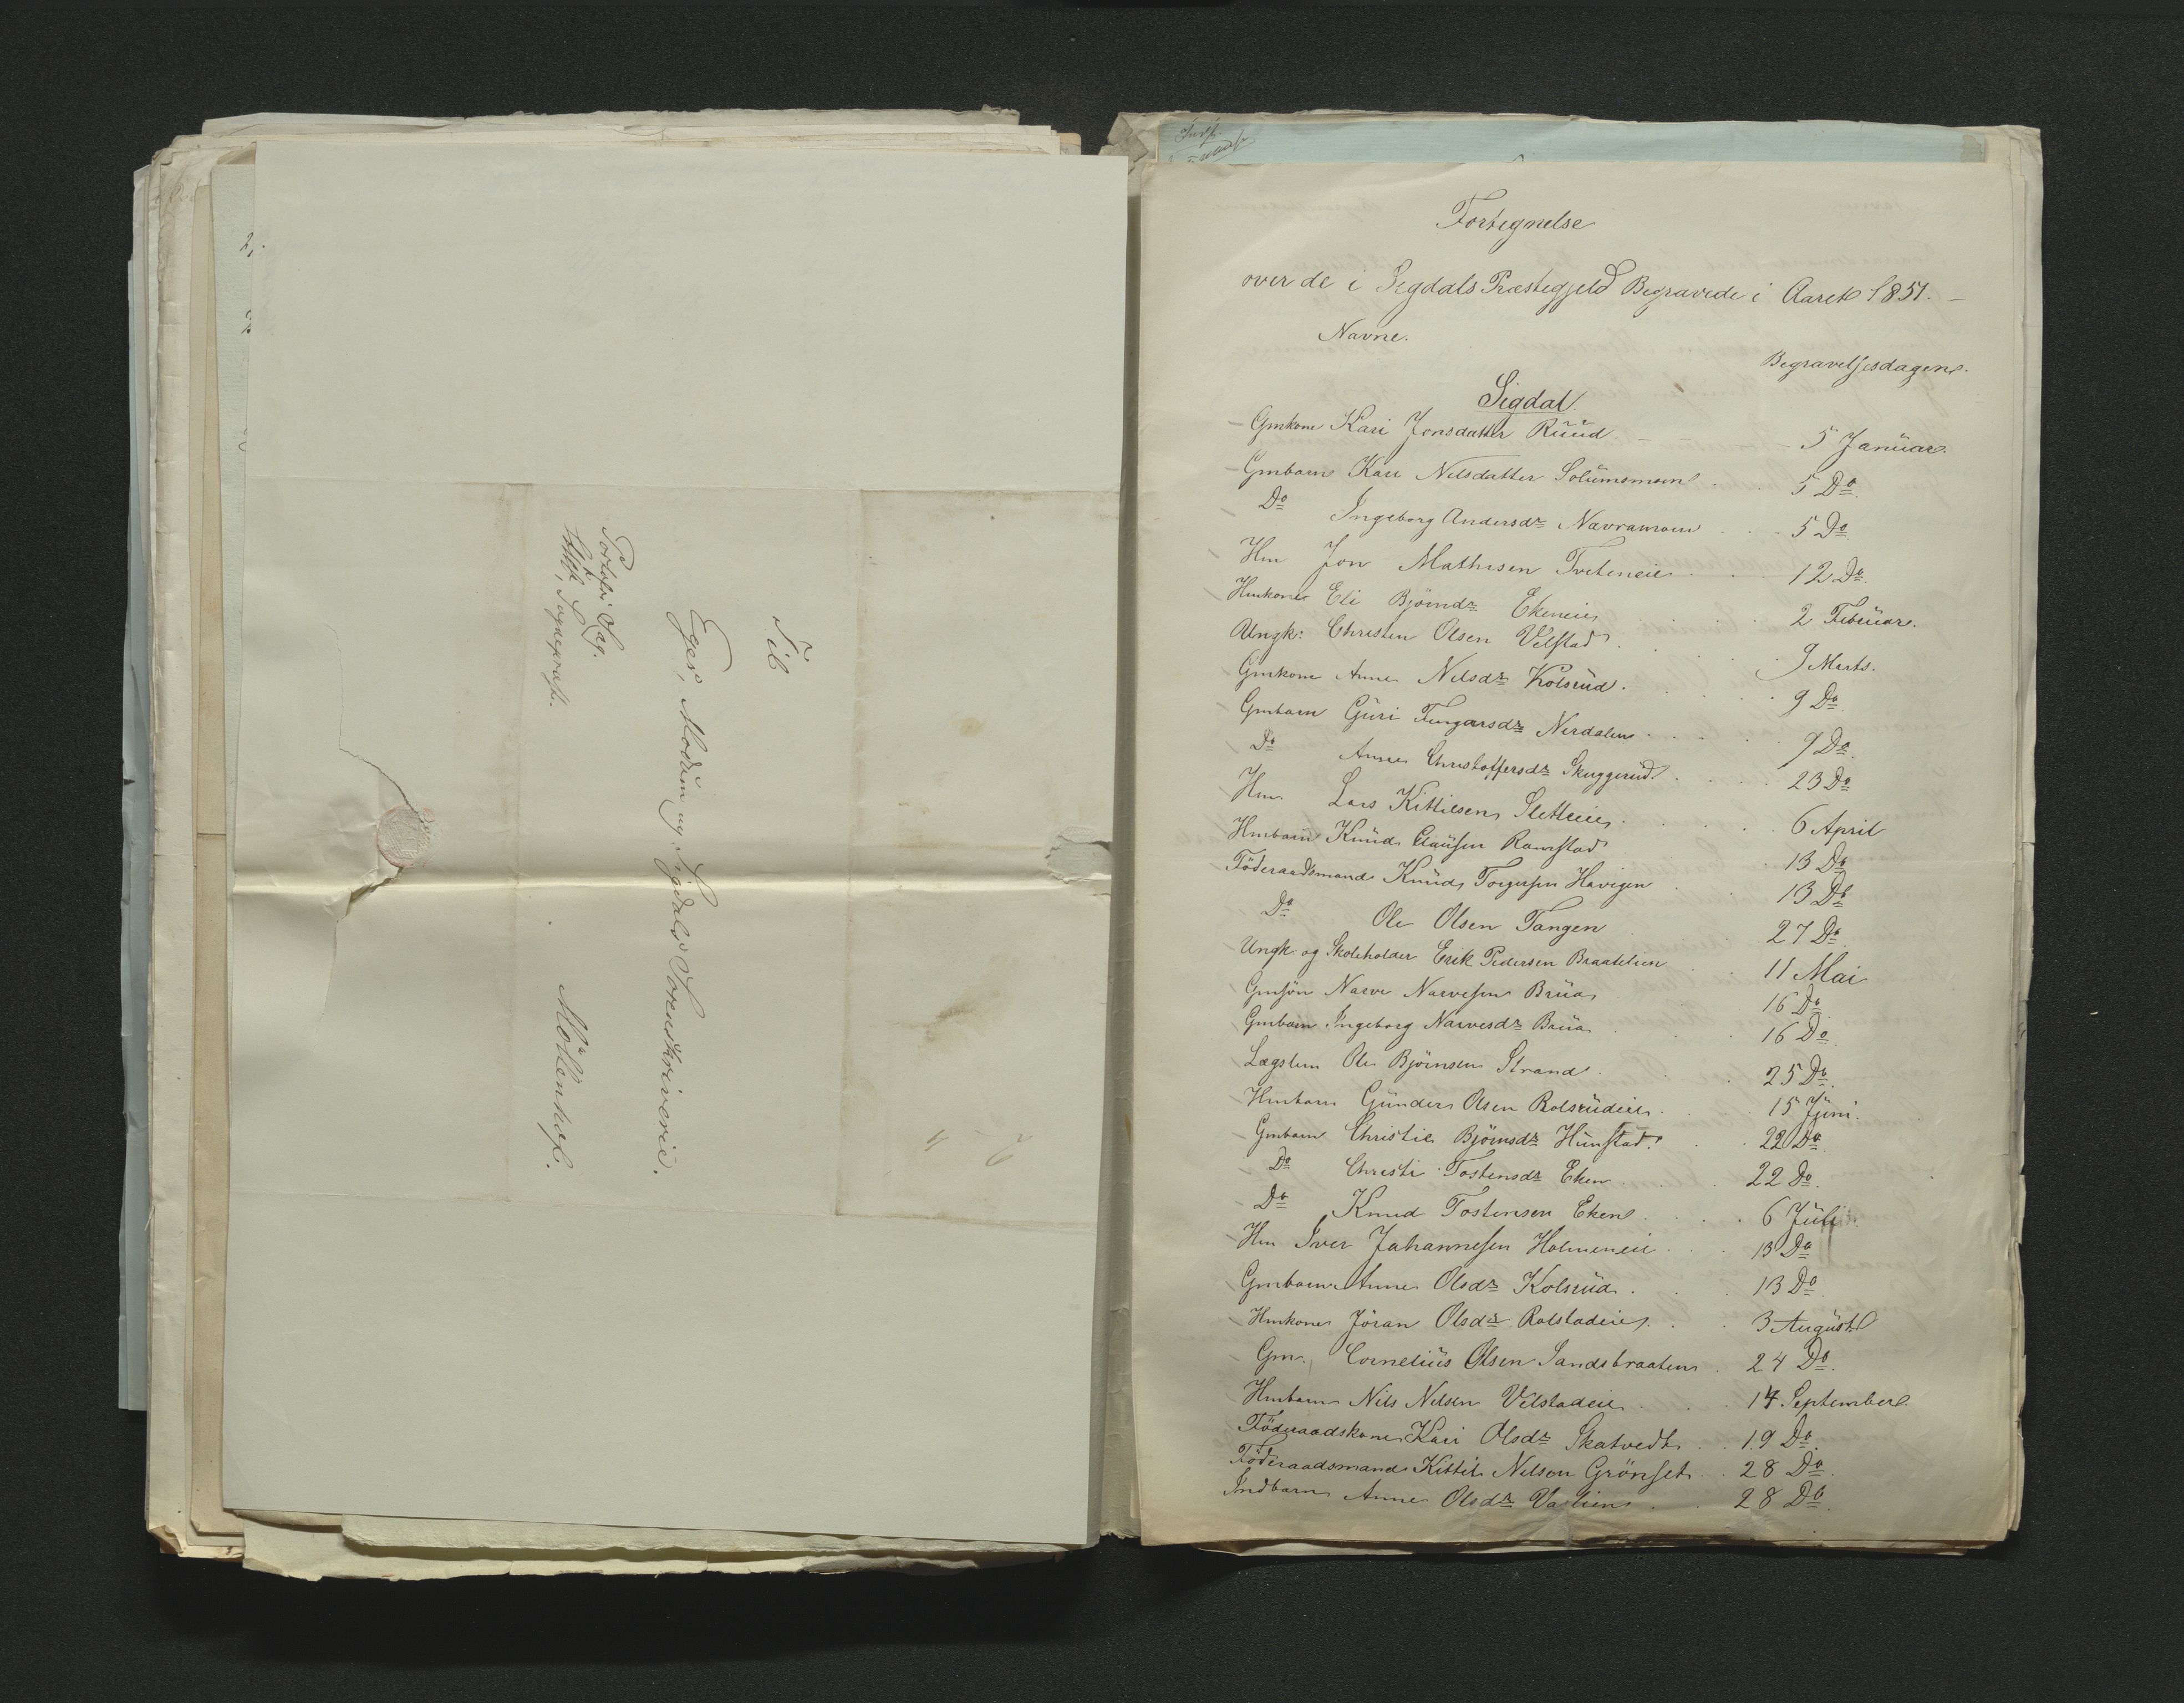 Til
Egers, Modum og Sigdals Sorenskriverie.
Portofri Sag.
Møllenhof.
Fortegnelse
over de i Segdals Præstegjeld Begravede i Aaret 1851. –
Navne.
Begravelsesdagene.
Sigdal
Gmkone Kari Jonsdatter Ruud 5 Januar.
Gmbarn Kari Nilsdatter Solumsmoen 5 Do
Do Ingeborg Andersdr Navramoen 5 Do
Hm Jon Mathisen Tveteneie 12 Do
Hmkone Eli Bjørnsdr Ekeneie 2 Februar.
Ungk: Christen Olsen Velstad 9 Marts.
Gmkone Anne Nilsdr Kolsrud. 9 Do
Gmbarn Guri Tungarsdr Nerdalen 9 Do
Do Anne Christoffersdr Skuggerud 23 Do
Hm Lars Kittilsen Sletteeie 6 April
Hmbarn Knud Clausen Ramstad 13 Do
Föderaadsmand Knud Torgersen Havigen 13 Do
Do Ole Olsen Tangen 27 Do
Ungk. og Skoleholder Erik Pedersen Braatelien 11 Mai
Gmsøn Narve Narvesen Brua 16 Do
Gmbarn Ingeborg Narvesdr Brua 16 Do
Lægslem Ole Bjørnsen Strand 25 Do
Hmbarn Gunder Olsen Rolsrudeie 15 Juni.
Gmbarn Christie Bjørnsdr Hunstad 22 Do
Do Christi Tostensdr Eken 22 Do
Do Knud Tostensen Eken 6 Juli
Hm Iver Johannesen Holmeneie 13 Do
Gmbarn Anne Olsdr Kolsrud. 13 Do
Hmkone Jöran Olsdr Rolstadeie 3 August
Gm. Cornelius Olsen Sandsbraaten 24 Do
Hmbarn Nils Nilsen Velstadeie 14 September
Föderaadskone Kari Olsdr Skatvedt 19 Do
Föderaadsmand Kittil Nilson Grönset 28 Do
Indbarn Anne Olsdr Vaslien 28 Do